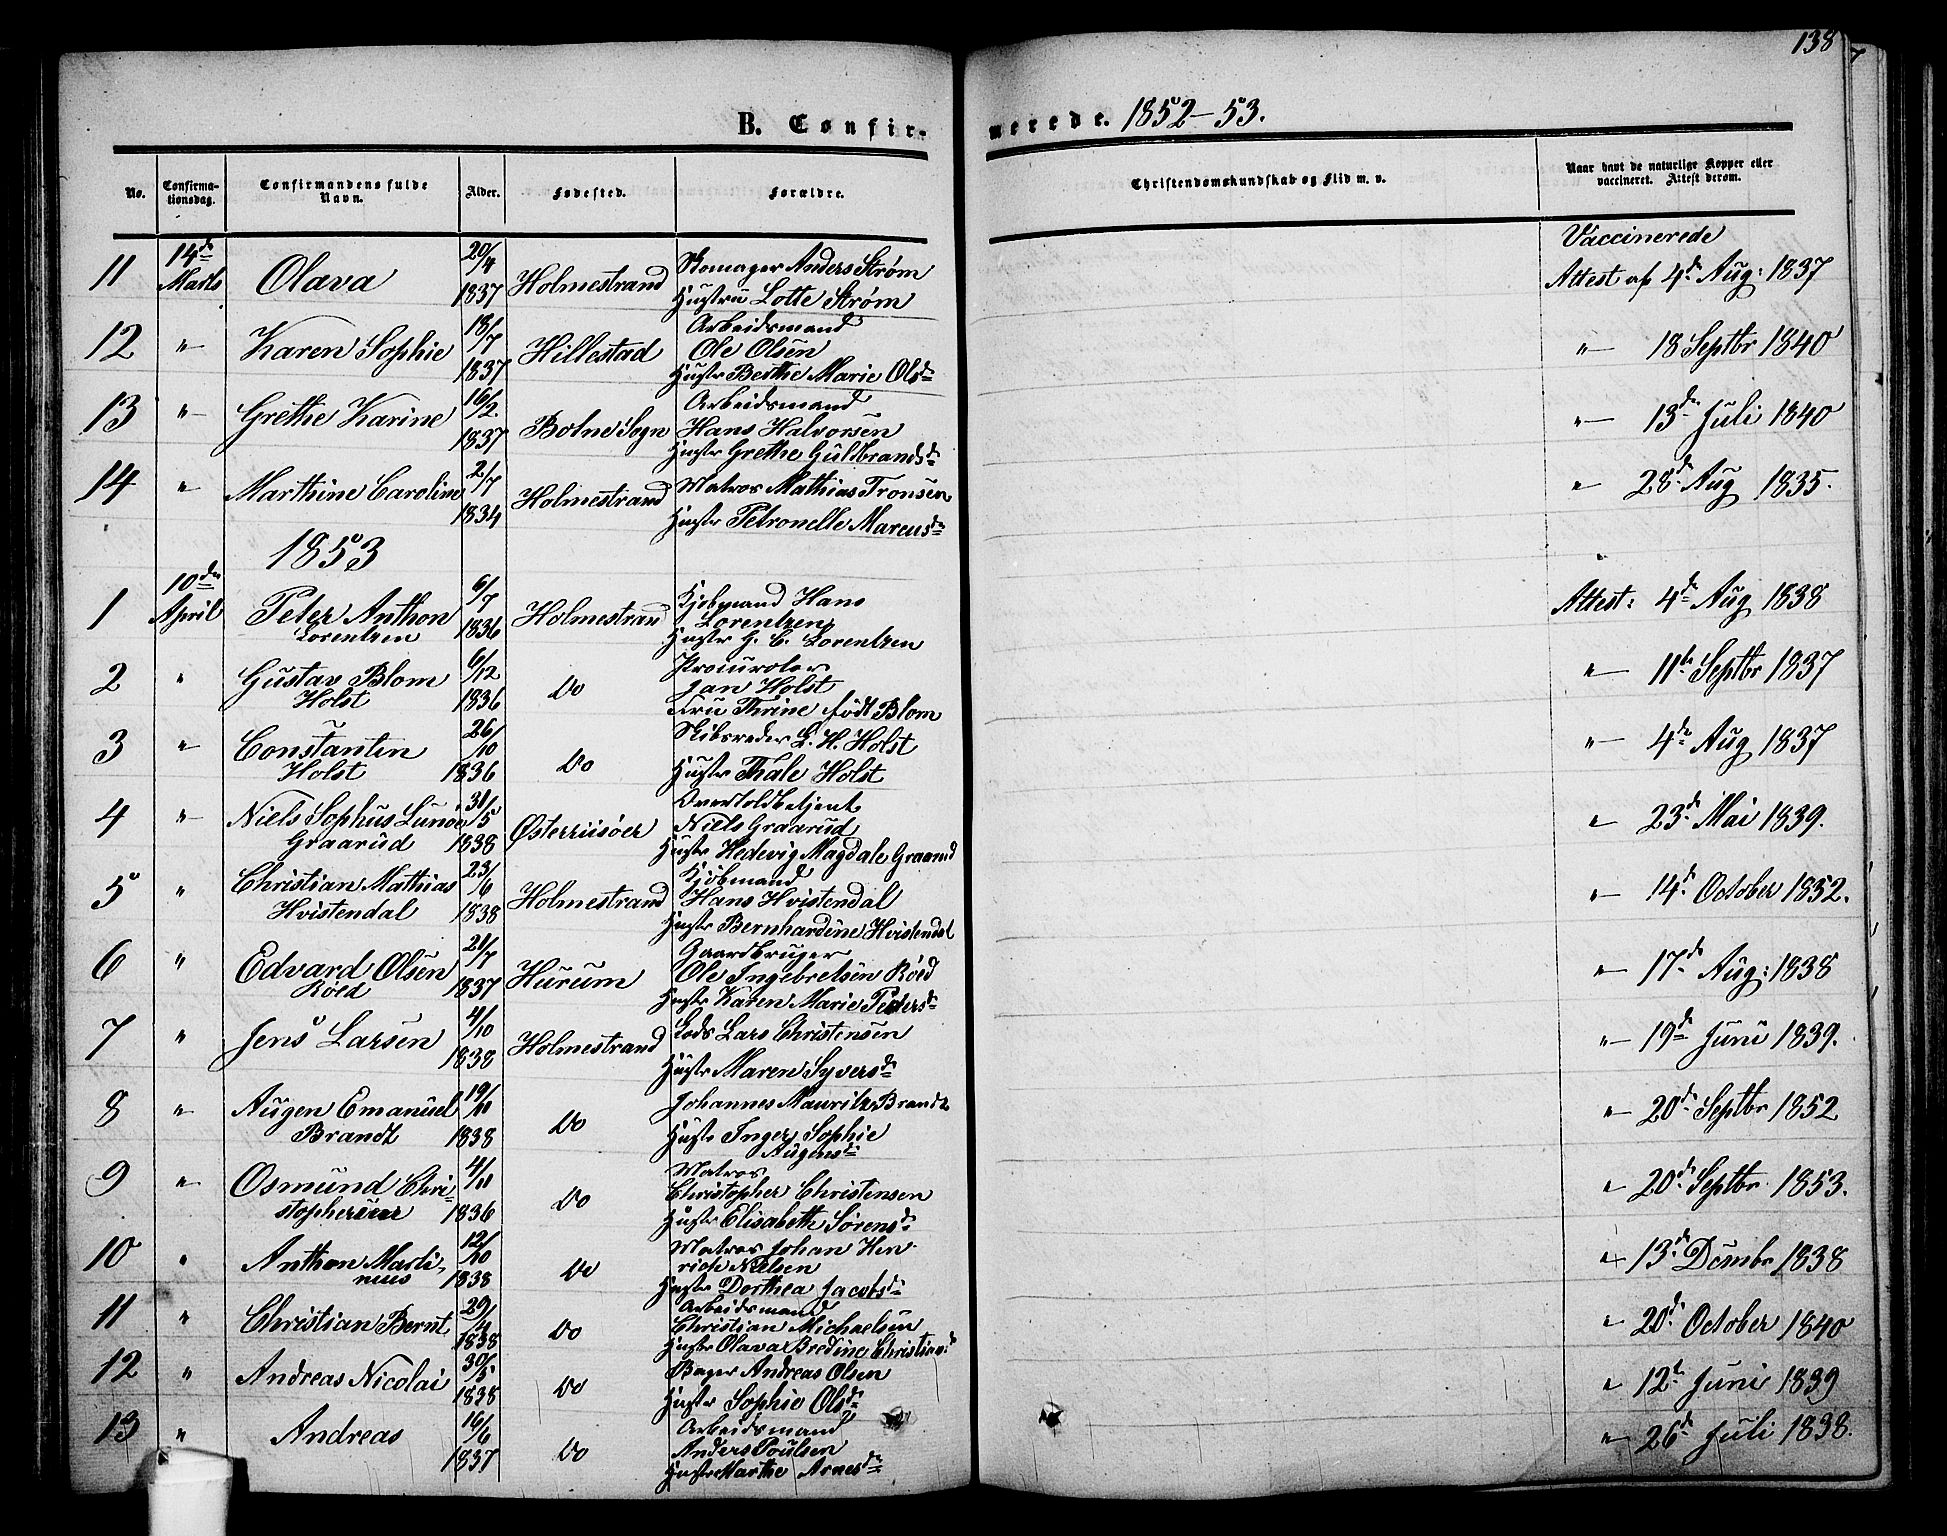 138
7
B. Confir-
merede. 1852-53.
No.
Confirma-
tionsdag.
Confirmandens fulde
Navn.
Alder.
Fødested.
Forældre.
Christendomskundskab og Flid m. v.
Naar havt de naturlige Kopper eller
vaccineret. Attest derom.
Vaccinerede
11 14de Marts Olava 20/4 1837 Holmestrand Skomager Anders Strøm
Hustru Lotte Strøm
Attest af 4de Aug: 1837
12 " Karen Sophie 18/7 1837 Hillestad Arbeidsmand
Ole Olsen
Hustr Berthe Marie Olsdr
" 18 Septbr 1840
13 " Grethe Karine 16/2 1837 Botne Sogn Arbeidsmand
Hans Halvorsen
Hustr Grethe Guldbrandsdr
" 13de Juli 1840
14 " Marthine Caroline 2/7 1834 Holmestrand Matros Mathias Tronsen
Hustr Petronelle Marcusdr
" 28de Aug 1835.
1853
1 10de April Peter Anthon
Lorentzen 6/7 1836 Holmestrand Kjøbmand Hans
Lorentzen
Hustr G. C. Lorentzen
Attest: 4de Aug 1838
2 " Gustav Blom
Holst 6/12 1836 Do Procurator
Jan Holst
Fru Thrine født Blom
" 11te Septbr 1837
3 " Constantin
Holst 26/10 1836 Do Skibsreder L. H. Holst
Hustr Thale Holst
" 4de Aug 1837
4 " Niels Sophus Lunoe
Graarud 31/5 1838 Østerriisøer Overtoldbetjent
Niels Graarud
Hustr Hedevig Magdale Graarud
" 23de Mai 1839.
5 " Christian Mathias
Hvistendal 23/6 1838 Holmestrand Kjøbmand
Hans Hvistendal
Hustr Bernhardine Hvistendal
" 14de October 1852.
6 " Edvard Olsen
Röed 21/7 1837 Hurum Gaardbruger
Ole Ingebretsen Röed
Hustr Karen Marie Pedersdr
" 17de Aug: 1838
7 " Jens Larsen 4/10 1838 Holmestrand Lods Lars Christensen
Hustr Maren Syversdr
" 19de Juni 1839.
8 " Augen Emanuel
Brandt 19/11 1838 Do Johannes Mauritz Brandt
Hustr Inger Sophie
Augensdr
" 20de Septbr 1852
9 " Osmund Chri-
stophersen 4/11 1836 Do Matros
Christopher Christensen
Hustr Elisabeth Sørensdr
" 20de Septbr 1853.
10 " Anthon Marti-
nius 12/10 1838 Do Matros Johan Hen-
rich Nilsen
Hustr Dorthea Jacobsdr
" 13de Decmbr 1838
11 " Christian Bernt 29/4 1838 Do Arbeidsmand
Christian Michaelsen
Hustr Olava Bredine Christiansd
" 20de October 1840
12 " Andreas Nicolai 30/5 1838 Do Bager Andreas Olsen
Hustr Sophie Olsdr
" 12te Juni 1839
13 " Andreas 16/6 1837 Do Arbeidsmand
Anders Poulsen
Hustr Marthe Arnesdr
" 26de Juli 1838.